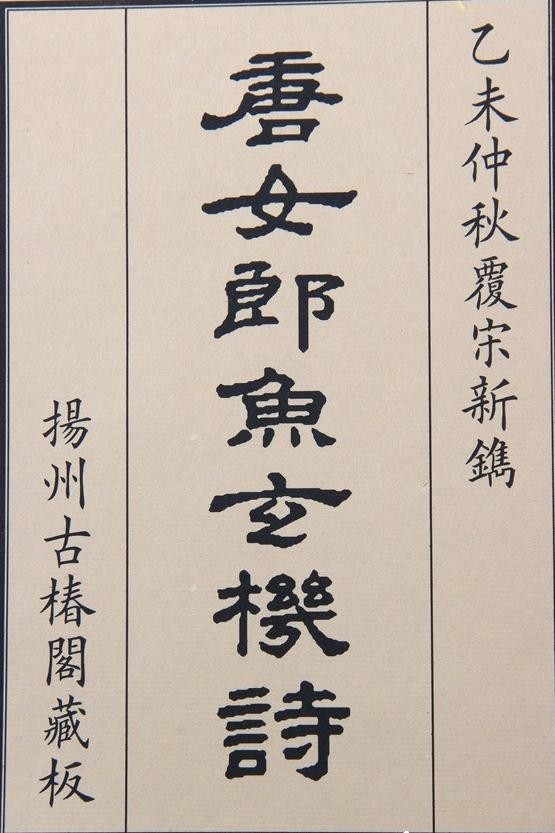 乙未仲秋覆宋新鐫
唐女郎魚玄機詩
揚州古椿閣藏板